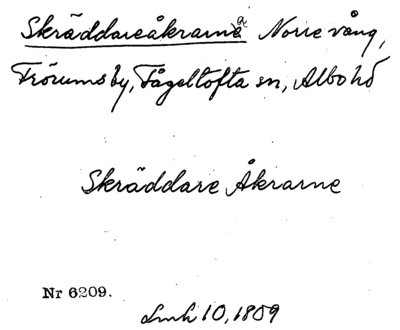 Skräddareåkrarna Norre vång,
Frörums by, Fågeltofta sn, Albo hd
Skräddare Åkrarne
Nr 6209.
Lmk 10, 1809